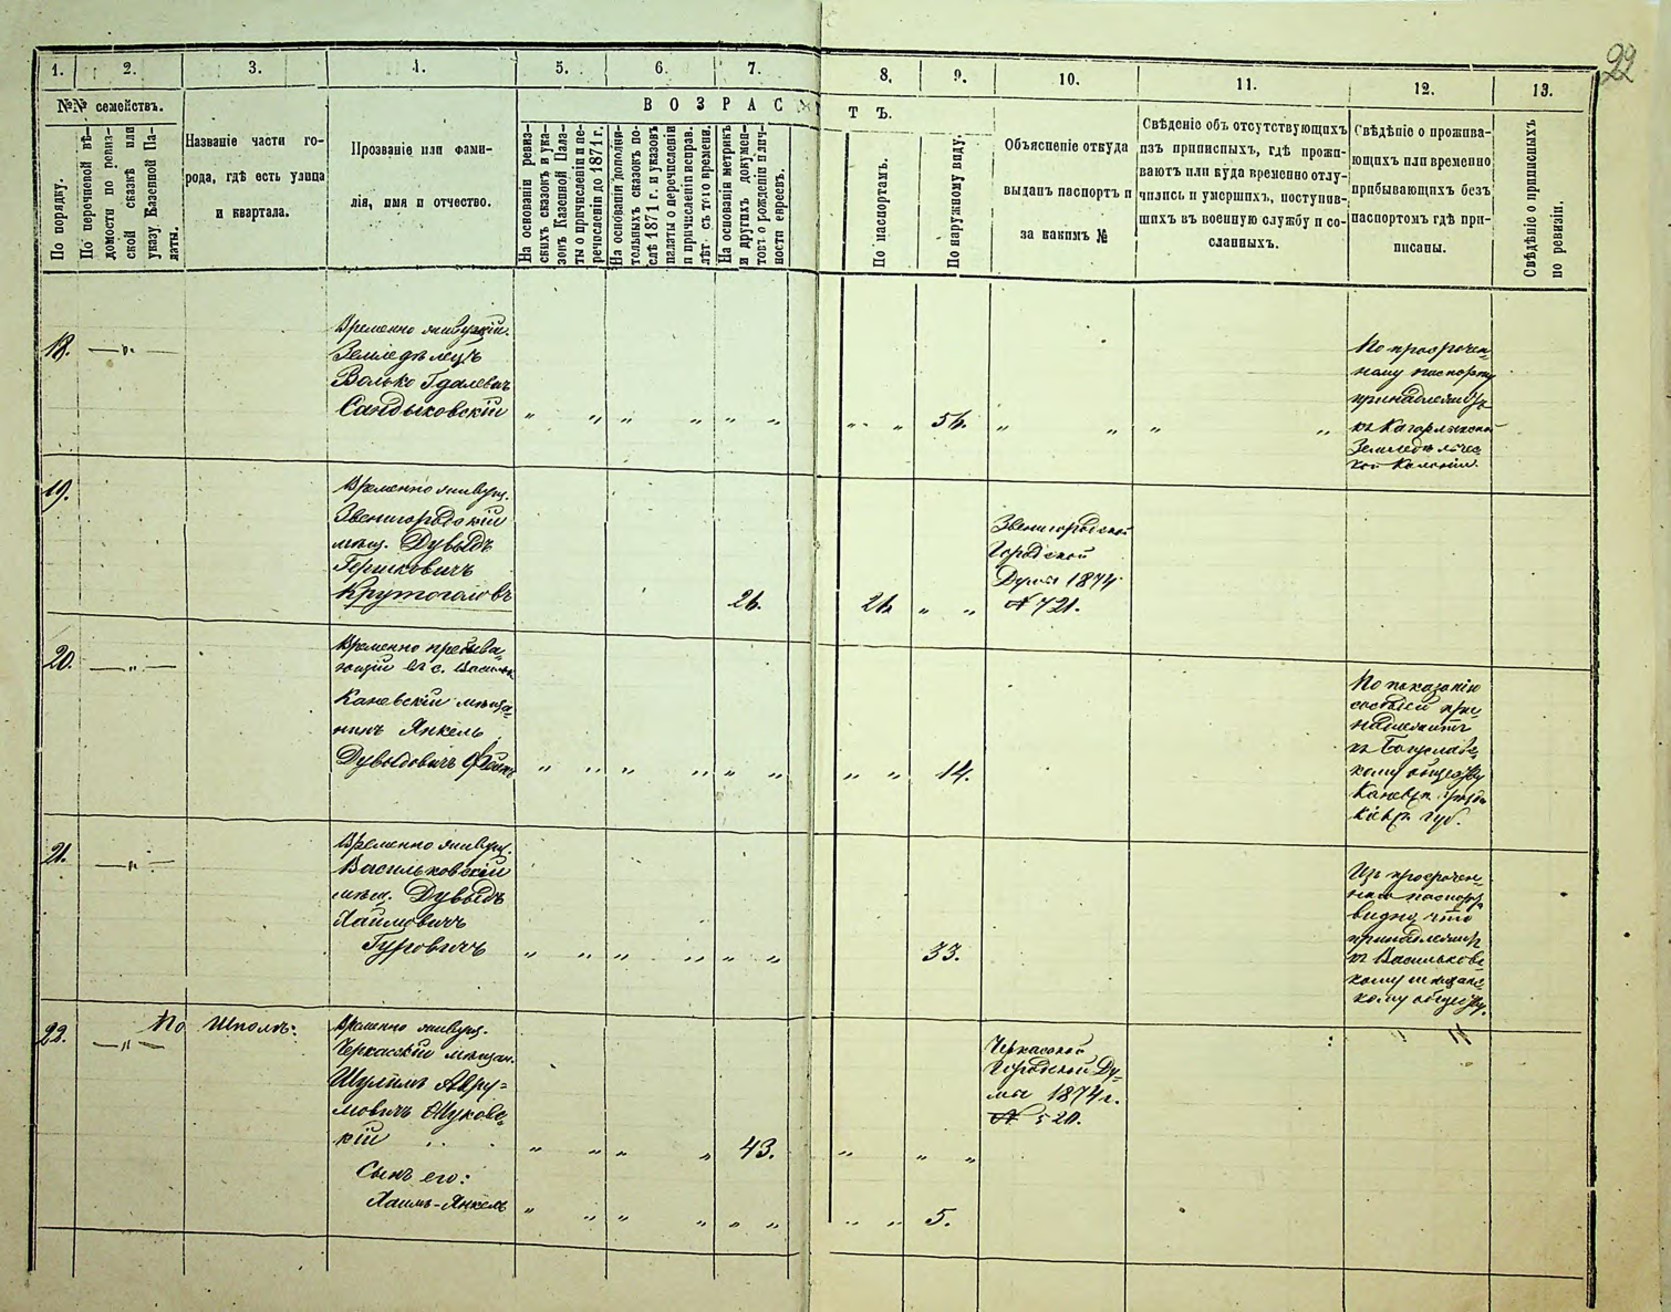 22
1. 2. 3. 4. 5. 6. 7. 8. 9. 10. 11. 12. 13.
№№ семействъ.
По порядку.
По перечневой вѣ-
домости по ревиз-
ской сказкѣ или
указу Казенной Па-
латы.
Названіе части го-
рода, гдѣ есть улица
и квартала.
Прозваніе или фами-
лія, имя и отчество.
ВОЗРАСТЪ.
На основаніи ревиз-
скихъ сказокъ и ука-
зовъ Казенной Пала-
ты о причисленіи и пе-
речисленіи до 1871 г.
На основаніи дополни-
тельныхъ сказокъ по-
слѣ 1871 г. и указовъ
палаты о перечисленіи
и причисленіи исправ.
лѣт съ того времени.
На основаніи метрикъ
и другихъ докумен-
товъ о рожденіи и лич-
ности евреевъ.
По паспортамъ.
По наружному виду.
Объясненіе откуда
выданъ паспортъ и
за какимъ №
Свѣденіе объ отсутствующихъ
изъ приписныхъ, гдѣ прожи-
ваютъ или куда временно отлу-
чились и умершихъ, поступив-
шихъ въ военную службу и со-
сланныхъ.
Свѣдѣніе о прожива-
ющихъ или временно
прибывающихъ безъ
паспортомъ гдѣ при-
писаны.
Свѣдѣніе о приписныхъ
по ревизіи.
18. — " —
Временно живущій.
Земледѣлецъ
Волько Гдалевичъ
Сандыковскій " " " " " " " " 56. " " " "
По просрочен-
ному паспорту
принадлежитъ
къ Кагарлыкской
Земледѣльчес-
кой Колоніи.
19.
Временно живущ.
Звенигородскій
мѣщ. Дувыдъ
Гершковичъ
Крутоголовъ 26. 26 " "
Звенигородской
Городской
Думы 1874
№ 721.
20. — " —
Временно пребыва-
ющій въ с.
Каневскій мѣща-
нинъ Янкель
Дувыдовичъ " " " " " " " " 14.
По показанію
принадлежитъ
къ Богуслав-
кому обществу
Каневск. уѣзда
Кіевск. губ.
21. — " —
Временно живущ.
Васильковскій
мѣщ. Дувыдъ
Хаимовичъ
Гуровичъ " " " " " " 33.
Изъ просрочен-
наго паспорта
видно что
принадлежитъ
къ Васильковс-
кому мѣщанс-
кому обществу.
22. — " — По Шполѣ:
Временно живущ.
Черкасскій мѣщан.
Шулимъ Авру-
мовичъ Жуковс-
кій " " " " 43. " " "
Черкасской
Городской Ду-
мы 1874 г.
№ 520.
Сынъ его:
Хаимъ-Янкель " " " " " " " " 5.